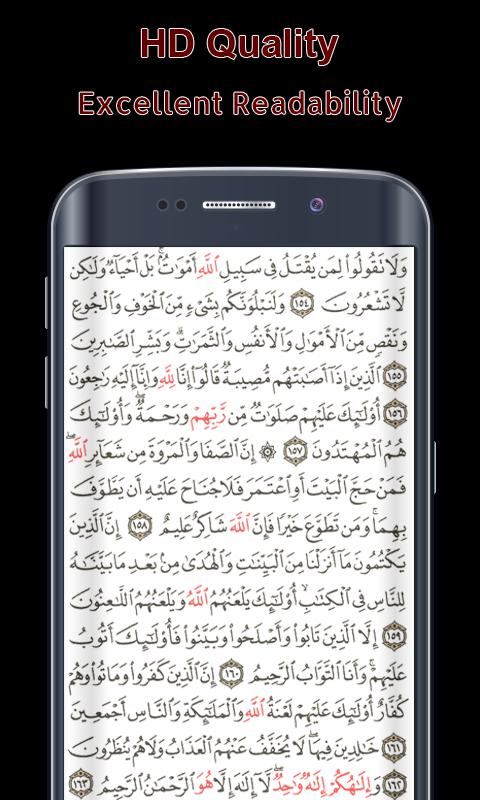 HD Quality
Excellent Readability
وَلَا تَقُولُوا۟ لِمَن يُقْتَلُ فِى سَبِيلِ ٱللَّهِ أَمْوَٰتٌۢ ۚ بَلْ أَحْيَآءٌ وَلَٰكِن
لَّا تَشْعُرُونَ ١٥٤ وَلَنَبْلُوَنَّكُم بِشَىْءٍ مِّنَ ٱلْخَوْفِ وَٱلْجُوعِ
وَنَقْصٍ مِّنَ ٱلْأَمْوَٰلِ وَٱلْأَنفُسِ وَٱلثَّمَرَٰتِ ۗ وَبَشِّرِ ٱلصَّٰبِرِينَ
١٥٥ ٱلَّذِينَ إِذَآ أَصَٰبَتْهُم مُّصِيبَةٌ قَالُوٓا۟ إِنَّا لِلَّهِ وَإِنَّآ إِلَيْهِ رَٰجِعُونَ
١٥٦ أُو۟لَٰٓئِكَ عَلَيْهِمْ صَلَوَٰتٌ مِّن رَّبِّهِمْ وَرَحْمَةٌ ۖ وَأُو۟لَٰٓئِكَ
هُمُ ٱلْمُهْتَدُونَ ١٥٧ ۞ إِنَّ ٱلصَّفَا وَٱلْمَرْوَةَ مِن شَعَآئِرِ ٱللَّهِ ۖ
فَمَنْ حَجَّ ٱلْبَيْتَ أَوِ ٱعْتَمَرَ فَلَا جُنَاحَ عَلَيْهِ أَن يَطَّوَّفَ
بِهِمَا ۚ وَمَن تَطَوَّعَ خَيْرًا فَإِنَّ ٱللَّهَ شَاكِرٌ عَلِيمٌ ١٥٨ إِنَّ ٱلَّذِينَ
يَكْتُمُونَ مَآ أَنزَلْنَا مِنَ ٱلْبَيِّنَٰتِ وَٱلْهُدَىٰ مِنۢ بَعْدِ مَا بَيَّنَّٰهُ
لِلنَّاسِ فِى ٱلْكِتَٰبِ ۙ أُو۟لَٰٓئِكَ يَلْعَنُهُمُ ٱللَّهُ وَيَلْعَنُهُمُ ٱللَّٰعِنُونَ
١٥٩ إِلَّا ٱلَّذِينَ تَابُوا۟ وَأَصْلَحُوا۟ وَبَيَّنُوا۟ فَأُو۟لَٰٓئِكَ أَتُوبُ
عَلَيْهِمْ ۚ وَأَنَا ٱلتَّوَّابُ ٱلرَّحِيمُ ١٦٠ إِنَّ ٱلَّذِينَ كَفَرُوا۟ وَمَاتُوا۟ وَهُمْ
كُفَّارٌ أُو۟لَٰٓئِكَ عَلَيْهِمْ لَعْنَةُ ٱللَّهِ وَٱلْمَلَٰٓئِكَةِ وَٱلنَّاسِ أَجْمَعِينَ
١٦١ خَٰلِدِينَ فِيهَا ۖ لَا يُخَفَّفُ عَنْهُمُ ٱلْعَذَابُ وَلَا هُمْ يُنظَرُونَ
١٦٢ وَإِلَٰهُكُمْ إِلَٰهٌ وَٰحِدٌ ۖ لَّآ إِلَٰهَ إِلَّا هُوَ ٱلرَّحْمَٰنُ ٱلرَّحِيمُ ١٦٣